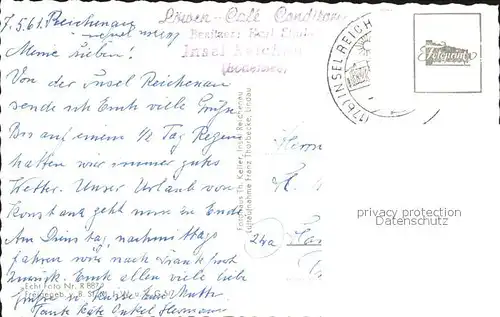 7.5.61. Reichenau
Löwen-Café Conditorei
Besitzer: Karl
Insel Reichenau
(Bodensee)
(17b) INSEL REICH
Meine Lieben!
Von der Insel Reichenau
sende ich Euch viele Grüße.
Bis auf einem 1/2 Tag Regen
hatten wir immer gutes
Wetter. Unser Urlaub von
Konstanz geht nun zu Ende
Am Dienstag, nachmittags
fahren wir nach Frankfurt
zurück. Euch allen viele liebe
Grüße u. Küsse Eure Mutti
Tante Käte Onkel Hermann
Echt Foto Nr. R 8873
Freigegeb. v. R.
Fotohaus Th. Keller, Insel Reichenau
Luftaufnahme Franz Thorbecke, Lindau
Herrn
H.
24a
privacy protection
Datenschutz